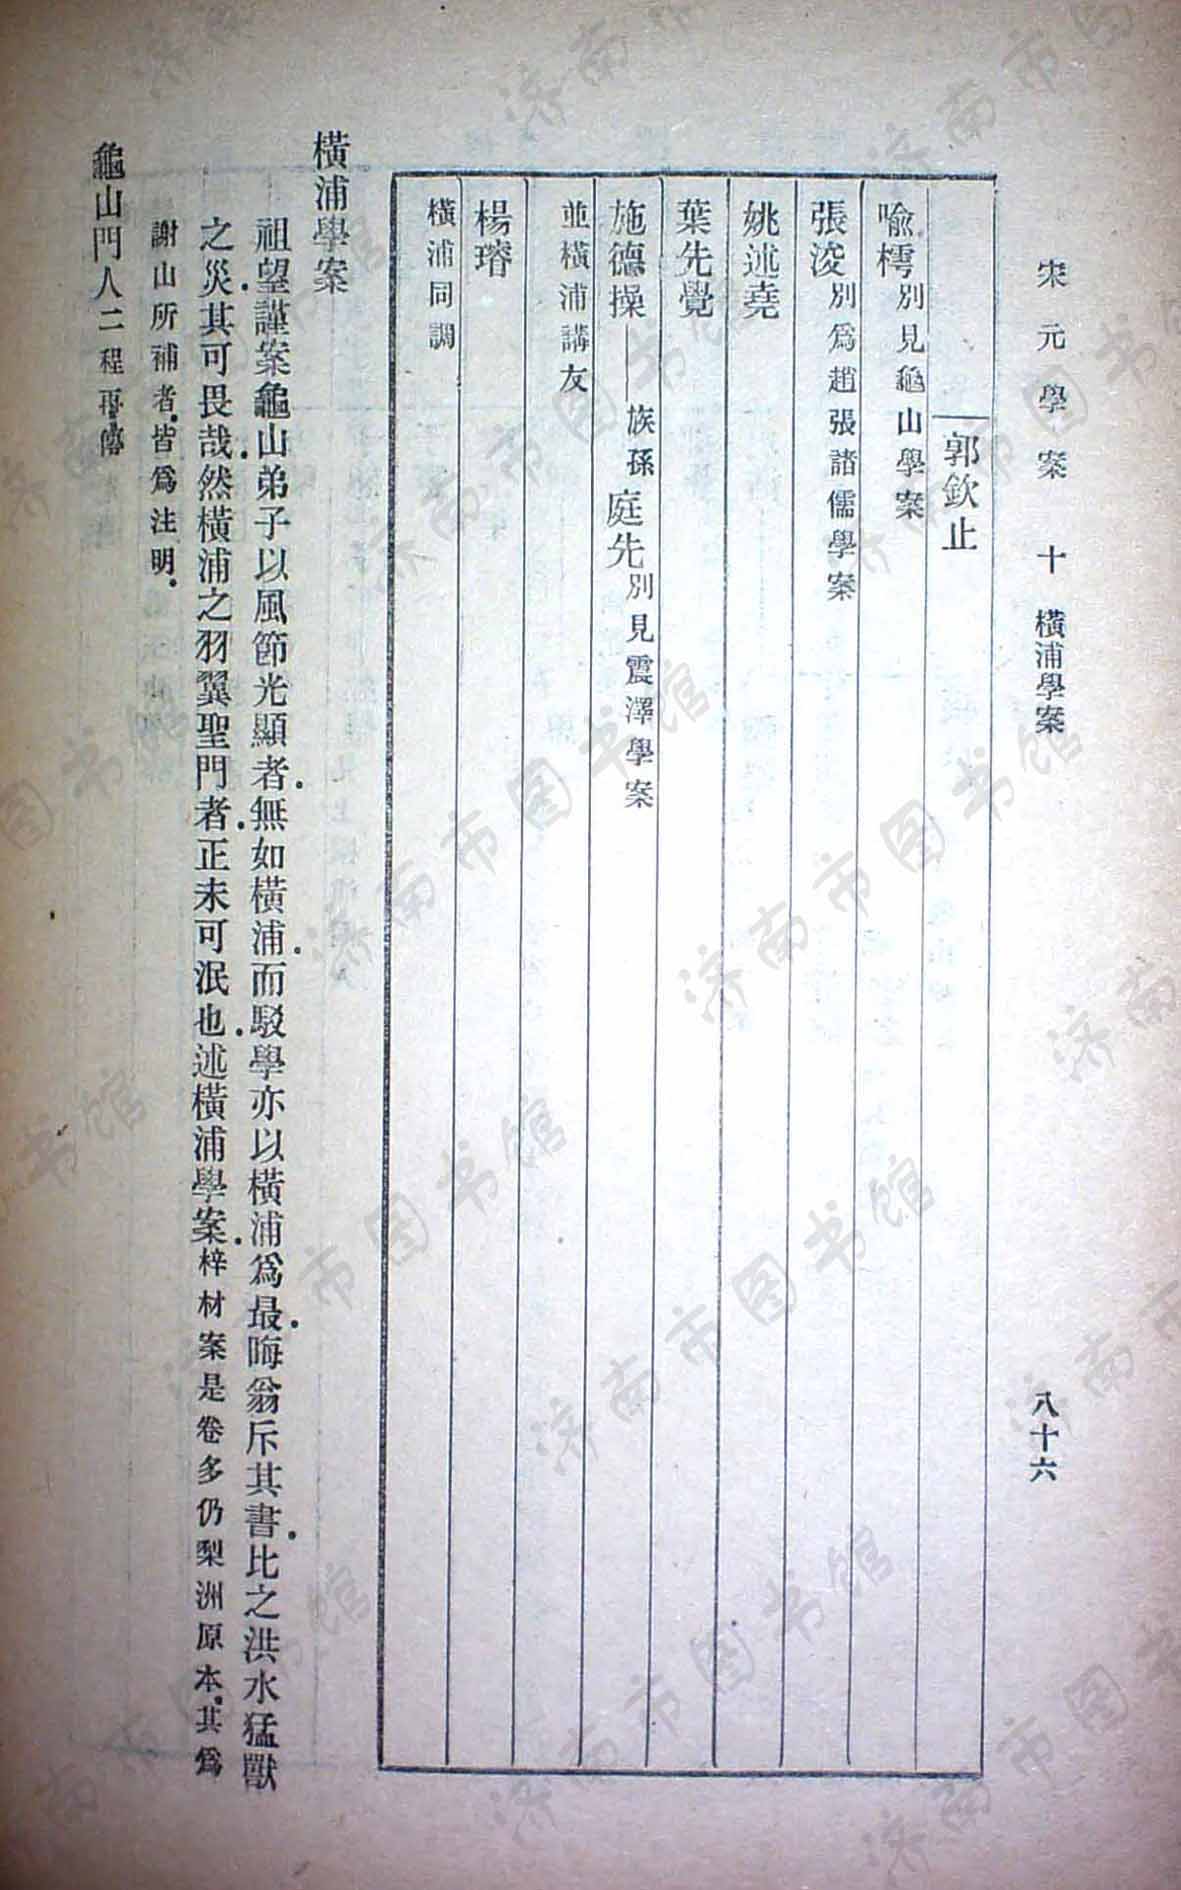 宋元學案　十　橫浦學案　八十六
郭欽止
喻樗別見龜山學案
張浚別爲趙張諸儒學案
姚述堯
葉先覺
施德操——族孫庭先別見震澤學案
並橫浦講友
楊璿
橫浦同調
橫浦學案
祖望謹案龜山弟子以風節光顯者.無如橫浦.而駁學亦以橫浦爲最.晦翁斥其書.比之洪水猛獸
之災.其可畏哉.然橫浦之羽翼聖門者.正未可泯也.述橫浦學案.梓材案是卷多仍梨洲原本.其爲
謝山所補者.皆爲注明.
龜山門人二程再傳
济南市图书馆